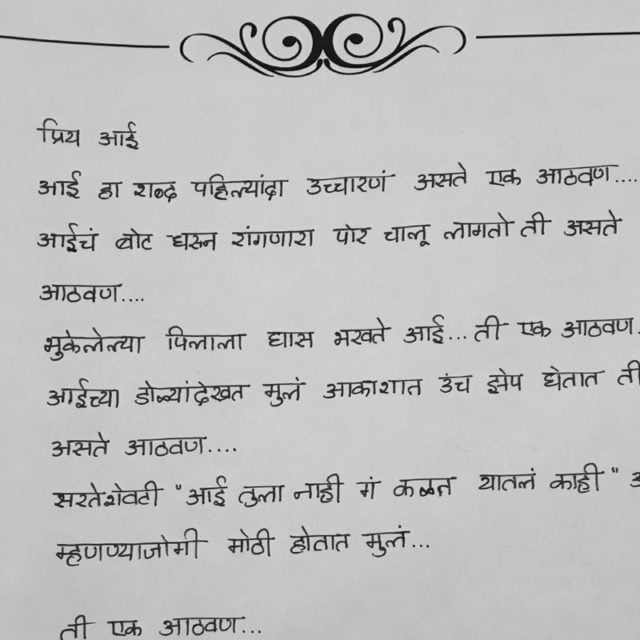 प्रिय आई
आई हा शब्द पहिल्यांदा उच्चारणं असते एक आठवण....
आईचं बोट धरुन रांगणारा पोर चालू लागतो ती असते
आठवण....
भुकेलेल्या पिलाला घास भरवते आई... ती एक आठवण.
आईच्या डोळ्यांदेखत मुलं आकाशात उंच झेप घेतात ती
असते आठवण....
सरतेशेवटी "आई तुला नाही गं कळत यातलं काही"
म्हणण्याजोगी मोठी होतात मुलं...
ती एक आठवण...